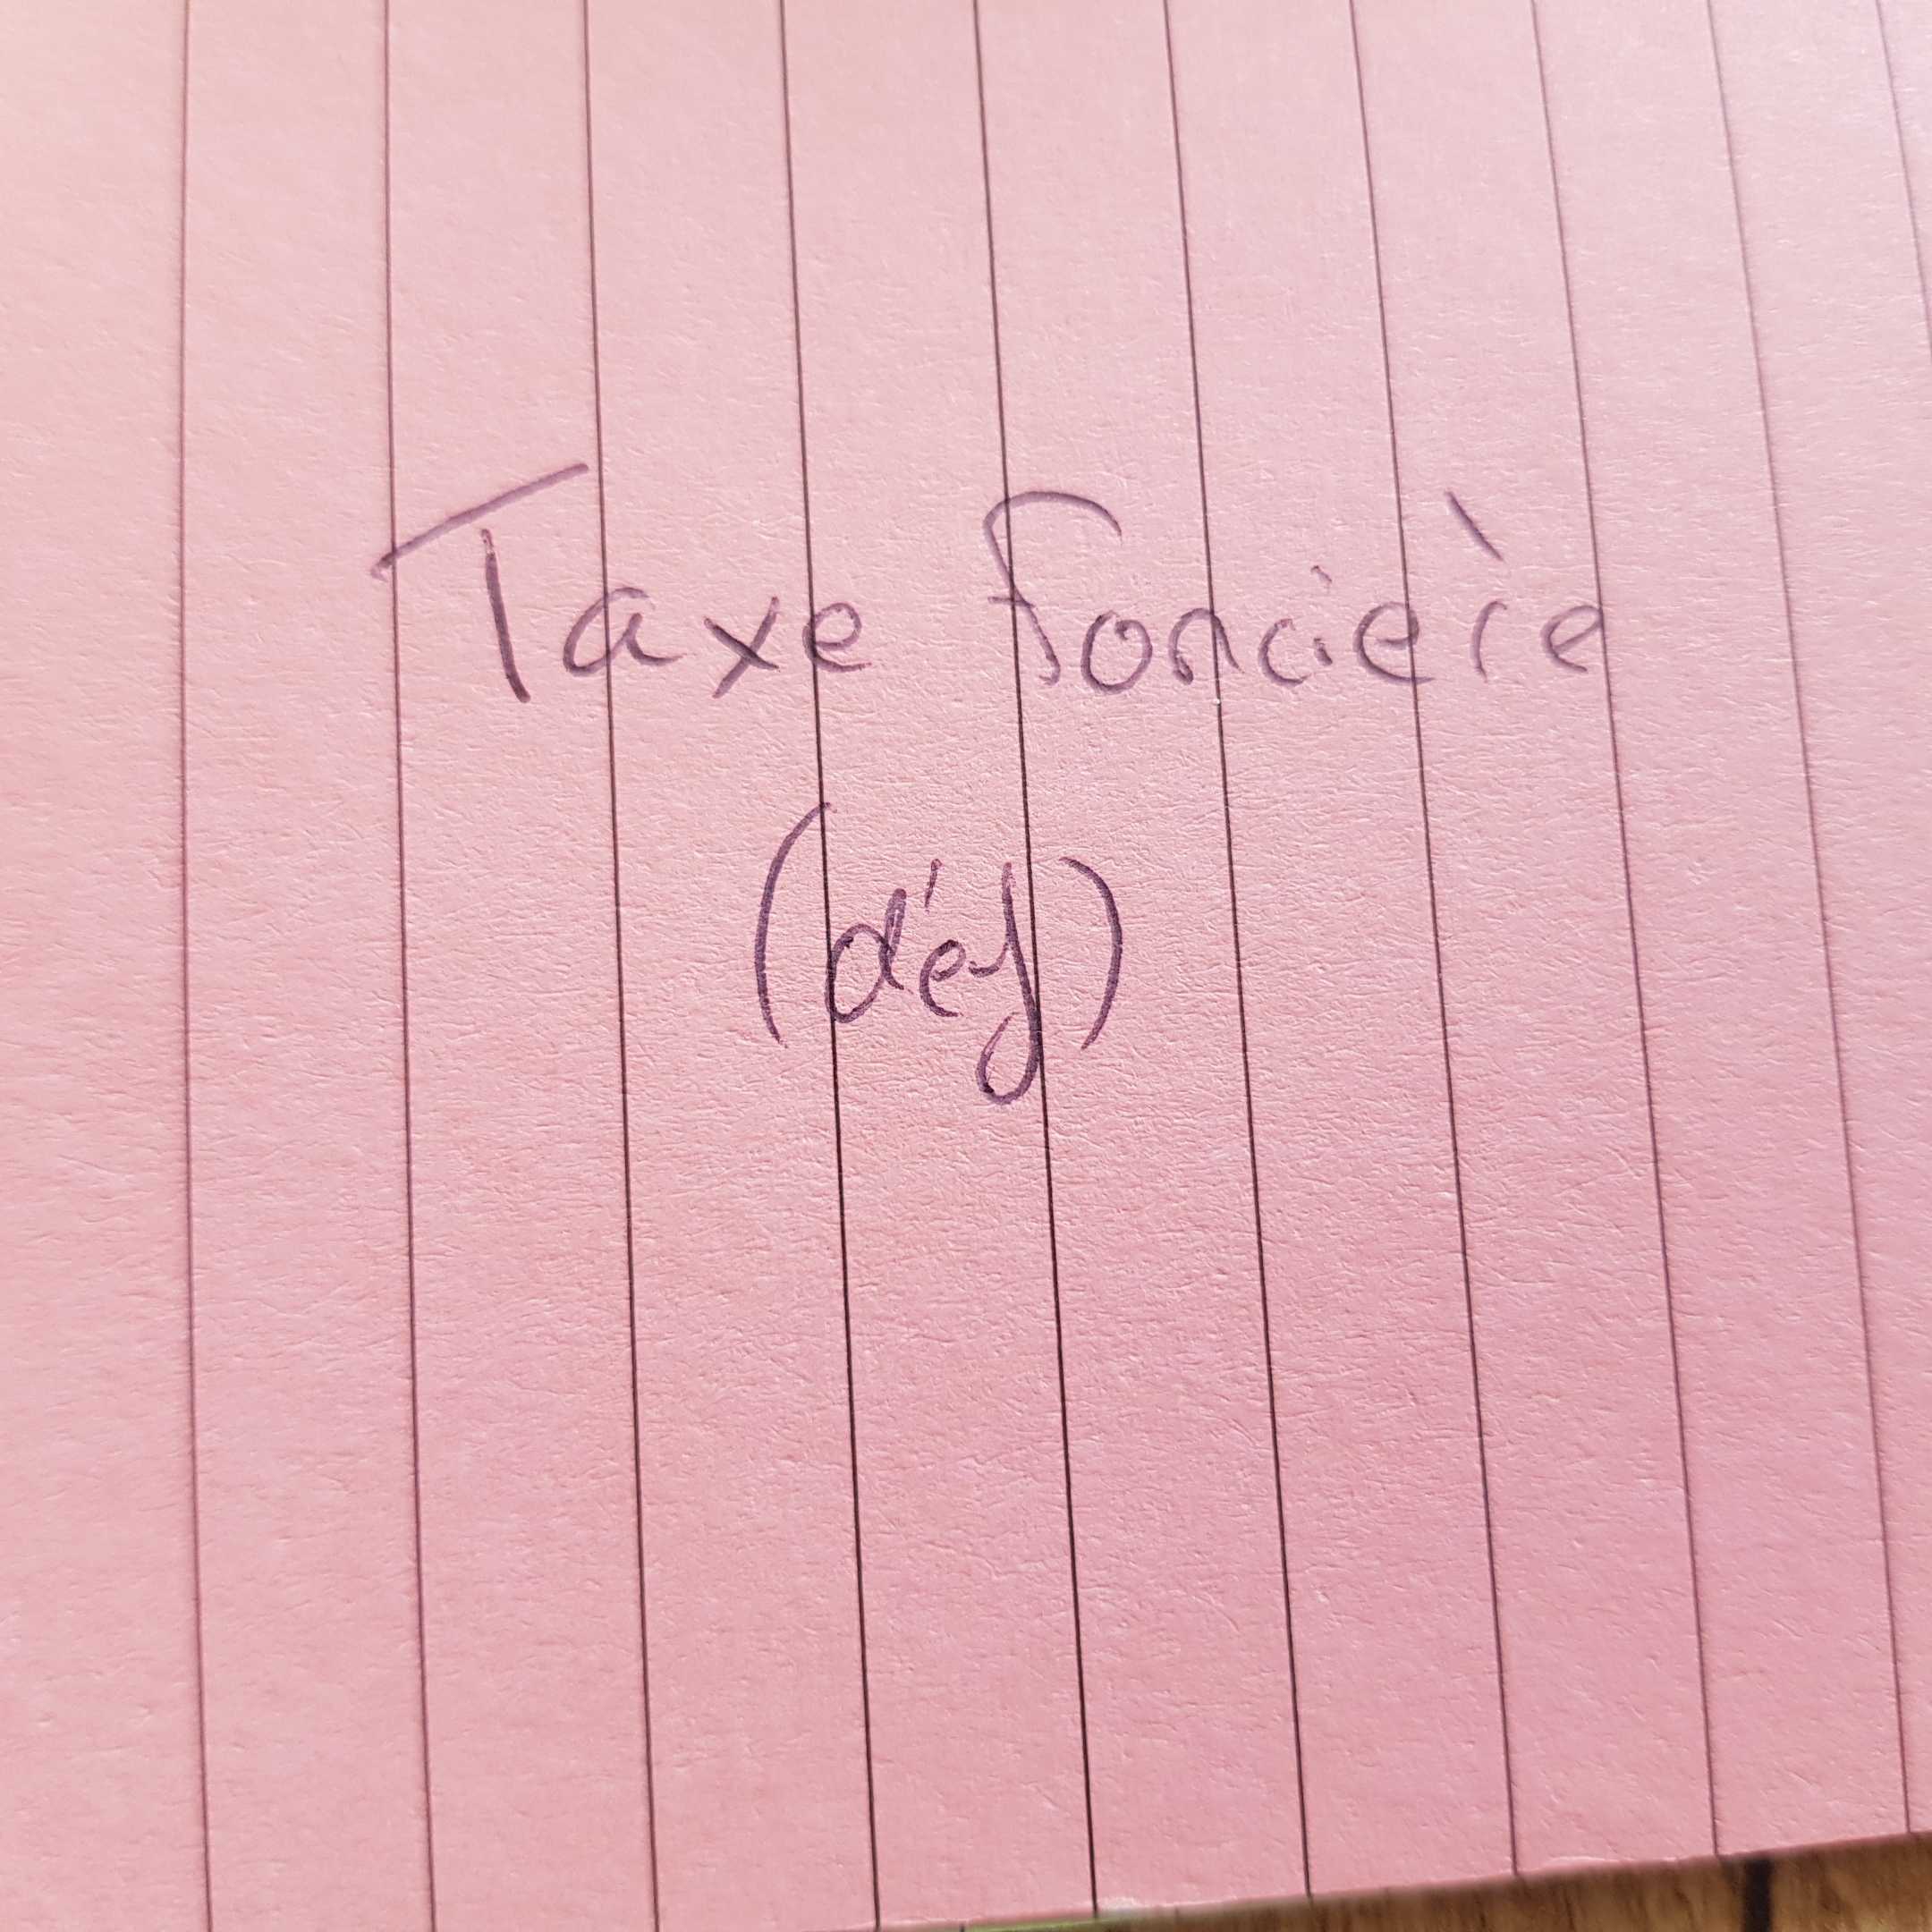 Taxe foncière
(déf)